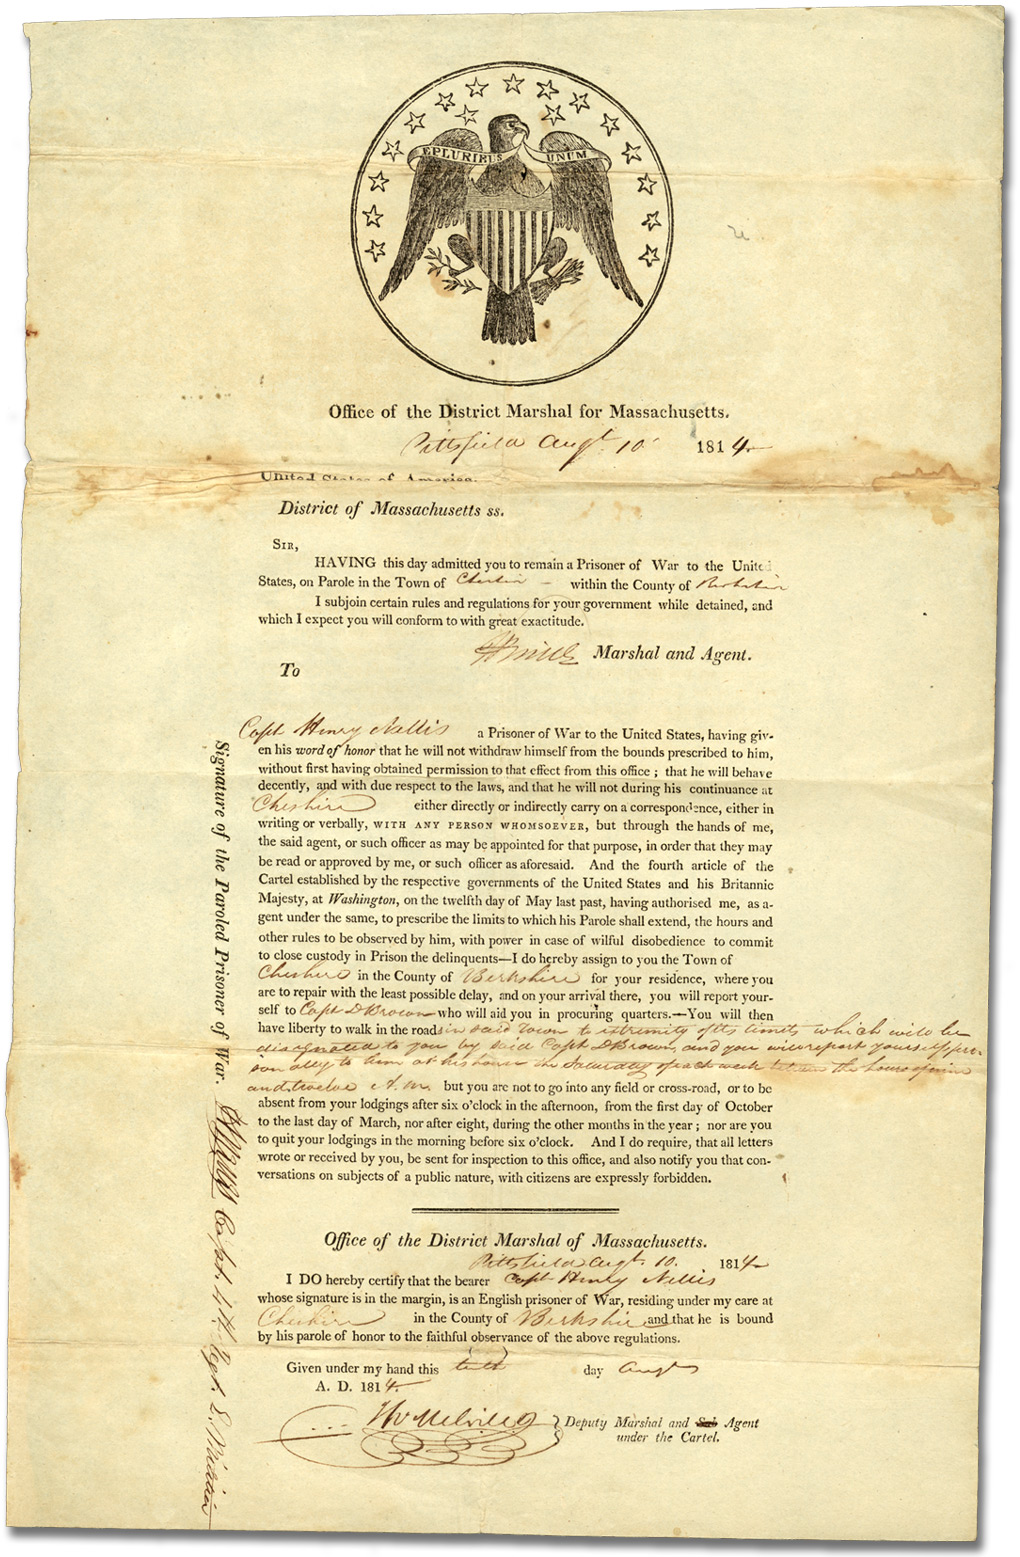 E PLURIBUS UNUM
Office of the District Marshal for Massachusetts.
Pittsfield Augt. 10 1814
United States of America.
District of Massachusetts ss.
SIR,
HAVING this day admitted you to remain a Prisoner of War to the United
States, on Parole in the Town of Cheshire — within the County of Berkshire
I subjoin certain rules and regulations for your government while detained, and
which I expect you will conform to with great exactitude.
Marshal and Agent.
To
Capt Henry Nellis a Prisoner of War to the United States, having giv-
en his word of honor that he will not withdraw himself from the bounds prescribed to him,
without first having obtained permission to that effect from this office ; that he will behave
decently, and with due respect to the laws, and that he will not during his continuance at
Cheshire either directly or indirectly carry on a correspondence, either in
writing or verbally, WITH ANY PERSON WHOMSOEVER, but through the hands of me,
the said agent, or such officer as may be appointed for that purpose, in order that they may
be read or approved by me, or such officer as aforesaid. And the fourth article of the
Cartel established by the respective governments of the United States and his Britannic
Majesty, at Washington, on the twelfth day of May last past, having authorised me, as a-
gent under the same, to prescribe the limits to which his Parole shall extend, the hours and
other rules to be observed by him, with power in case of wilful disobedience to commit
to close custody in Prison the delinquents—I do hereby assign to you the Town of
Cheshire in the County of Berkshire for your residence, where you
are to repair with the least possible delay, and on your arrival there, you will report your-
self to Capt D Brown who will aid you in procuring quarters.—You will then
have liberty to walk in the roads in said Town to extremity of its limits which will be
designated to you by said Capt D Brown, and you will report yourself per-
sonally to him at his house on Saturday of each week between the hours of nine
and twelve A.M. but you are not to go into any field or cross-road, or to be
absent from your lodgings after six o'clock in the afternoon, from the first day of October
to the last day of March, nor after eight, during the other months in the year ; nor are you
to quit your lodgings in the morning before six o'clock. And I do require, that all letters
wrote or received by you, be sent for inspection to this office, and also notify you that con-
versations on subjects of a public nature, with citizens are expressly forbidden.
Office of the District Marshal of Massachusetts.
Pittsfield Augt. 10. 1814
I DO hereby certify that the bearer Capt Henry Nellis
whose signature is in the margin, is an English prisoner of War, residing under my care at
Cheshire in the County of Berkshire and that he is bound
by his parole of honor to the faithful observance of the above regulations.
Given under my hand this tenth day Augt
A. D. 1814.
Thos Melvill Deputy Marshal and Sub Agent
under the Cartel.
Signature of the Paroled Prisoner of War. HNellis Capt. 4th Regt. L. Militia